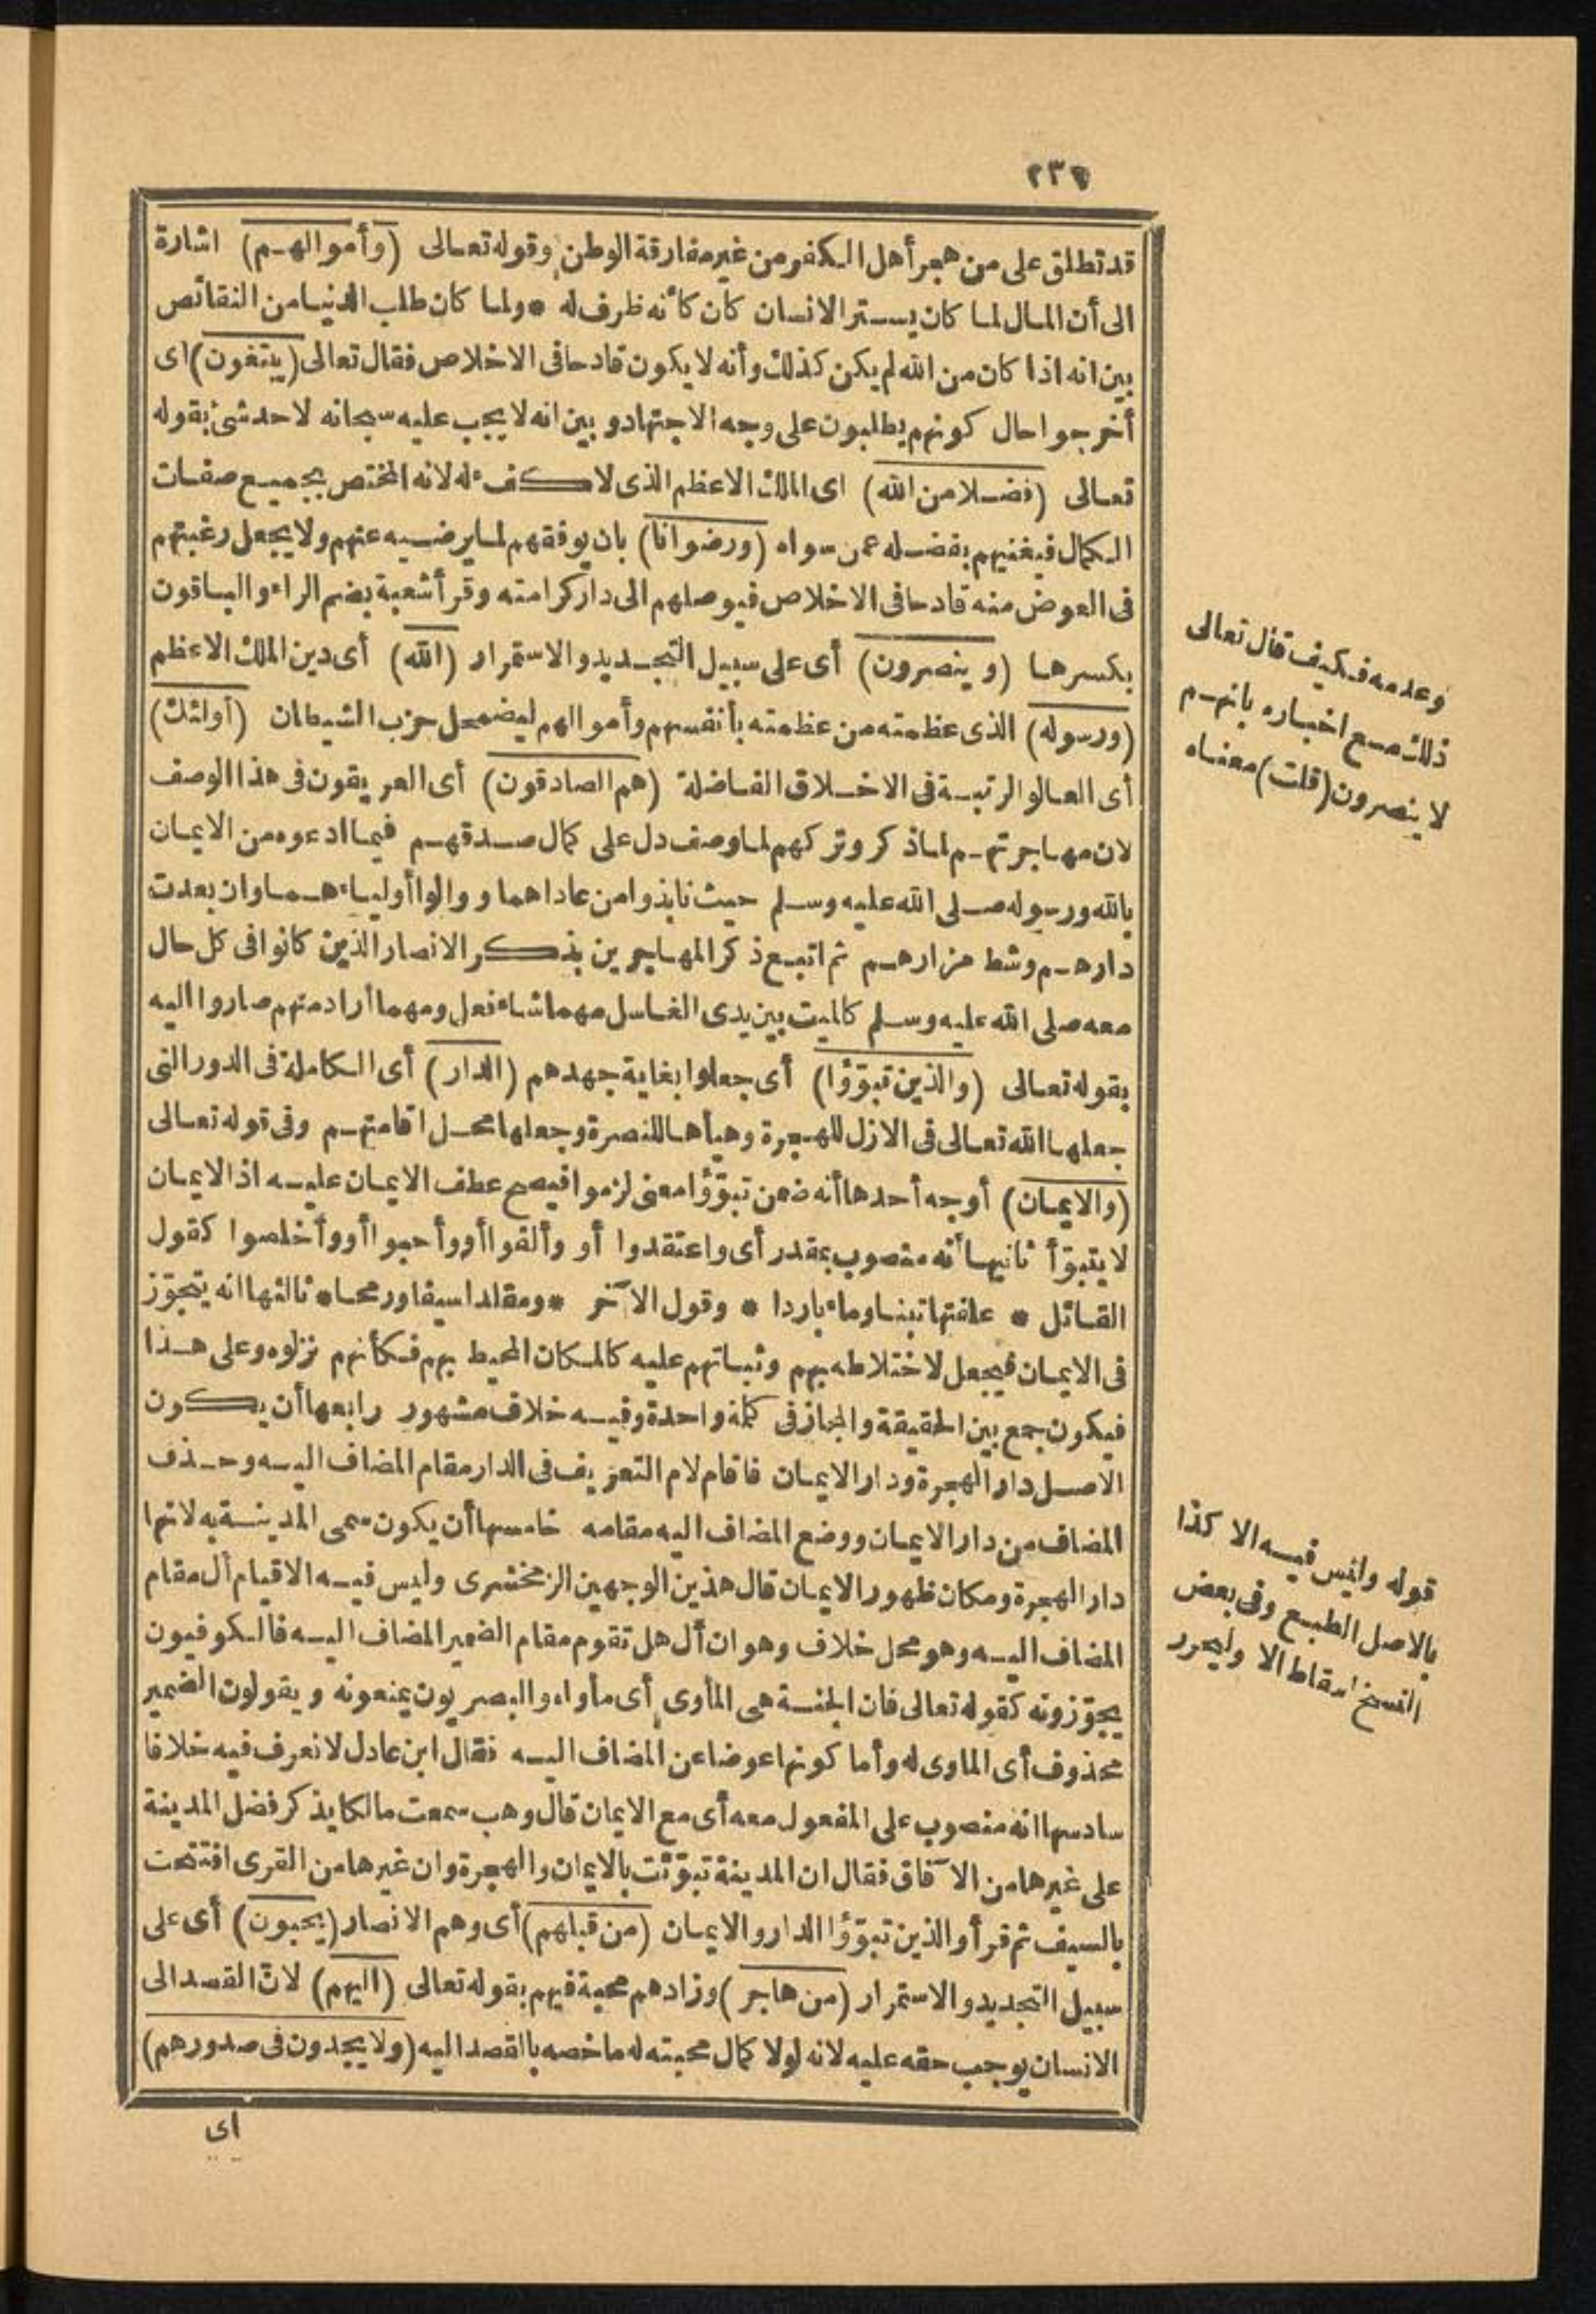 قد تطلق على من هجر أهل الكفر من غير مفارقة الوطن وقوله تعالى (وأموالهم) اشارة
الى أن المال لما كان يستر الانسان كان كأنه ظرف له * ولما كان طلب الدنيا من النقائص
بين انه اذا كان من الله لم يكن كذلك وأنه لا يكون قادحا فى الاخلاص فقال تعالى (يبتغون) اى
أخرجوا حال كونهم يطلبون على وجه الاجتهاد و بين انه لا يجب عليه سبحانه لاحد شئ بقوله
تعالى (فضلا من الله) اى الملك الاعظم الذى لا كفء له لانه المختص بجميع صفات
الكمال فيغنيهم بفضله عمن سواه (ورضوانا) بان يوفقهم لما يرضيه عنهم ولا يجعل رغبتهم
فى العوض منه قادحا فى الاخلاص فيوصلهم الى دار كرامته وقرأ شعبة بضم الراء والباقون
بكسرها (وينصرون) أى على سبيل التجديد والاستمرار (الله) أى دين الملك الاعظم
(ورسوله) الذى عظمته من عظمته بأنفسهم وأموالهم ليضمحل حزب الشيطان (أولئك)
أى العالو الرتبة فى الاخلاق الفاضلة (هم الصادقون) أى العريقون فى هذا الوصف
لان مهاجرتهم لما ذكر وتركهم لما وصف دل على كمال صدقهم فيما ادعوه من الايمان
بالله ورسوله صلى الله عليه وسلم حيث نابذوا من عاداهما ووالوا أولياءهما وان بعدت
دارهم وشط مزارهم ثم اتبع ذكر المهاجرين بذكر الانصار الذين كانوا فى كل حال
معه صلى الله عليه وسلم كالميت بين يدى الغاسل مهما شاء فعل ومهما أراد منهم صاروا اليه
بقوله تعالى (والذين تبوّؤا) أى جعلوا بغاية جهدهم (الدار) أى الكاملة فى الدور التى
جعلها الله تعالى فى الازل للهجرة وهيأها للنصرة وجعلها محل اقامتهم وفى قوله تعالى
(والايمان) أوجه أحدها أنه ضمن تبوّؤا معنى لزموا فيصح عطف الايمان عليه اذ الايمان
لا يتبوّأ ثانيها أنه منصوب بمقدر أى واعتقدوا أو وألقوا أو وأحبوا أو وأخلصوا كقول
القائل * علفتها تبنا وماء باردا * وقول الآخر * ومقلدا سيفا ورمحا * ثالثها انه يتجوّز
فى الايمان فيجعل لاختلاطه بهم وثباتهم عليه كالمكان المحيط بهم فكأنهم نزلوه وعلى هذا
فيكون جمع بين الحقيقة والمجاز فى كلمة واحدة وفيه خلاف مشهور رابعها أن يكون
الاصل دار الهجرة ودار الايمان فاقام لام التعريف فى الدار مقام المضاف اليه وحذف
المضاف من دار الايمان ووضع المضاف اليه مقامه خامسها أن يكون سمى المدينة به لانها
دار الهجرة ومكان ظهور الايمان قال هذين الوجهين الزمخشرى وليس فيه الا قيام أل مقام
المضاف اليه وهو محل خلاف وهو ان أل هل تقوم مقام الضمير المضاف اليه فالكوفيون
يجوّزونه كقوله تعالى فان الجنة هى المأوى أى مأواه والبصريون يمنعونه ويقولون الضمير
محذوف أى الماوى له وأما كونها عوضا عن المضاف اليه فقال ابن عادل لا نعرف فيه خلافا
سادسها انه منصوب على المفعول معه أى مع الايمان قال وهب سمعت مالكا يذكر فضل المدينة
على غيرها من الآفاق فقال ان المدينة تبوّئت بالايمان والهجرة وان غيرها من القرى افتتحت
بالسيف ثم قرأ والذين تبوّؤا الدار والايمان (من قبلهم) أى وهم الانصار (يحبون) أى على
سبيل التجديد والاستمرار (من هاجر) وزادهم محبة فيهم بقوله تعالى (اليهم) لانّ القصد الى
الانسان يوجب حقه عليه لانه لولا كمال محبته له ما خصه بالقصد اليه (ولا يجدون فى صدورهم)
اى
وعدمه فكيف قال تعالى
ذلك مع اخباره بانهم
لا ينصرون (قلت) معناه
قوله وليس فيه الا كذا
بالاصل الطبع وفى بعض
النسخ اسقاط الا وليحرر